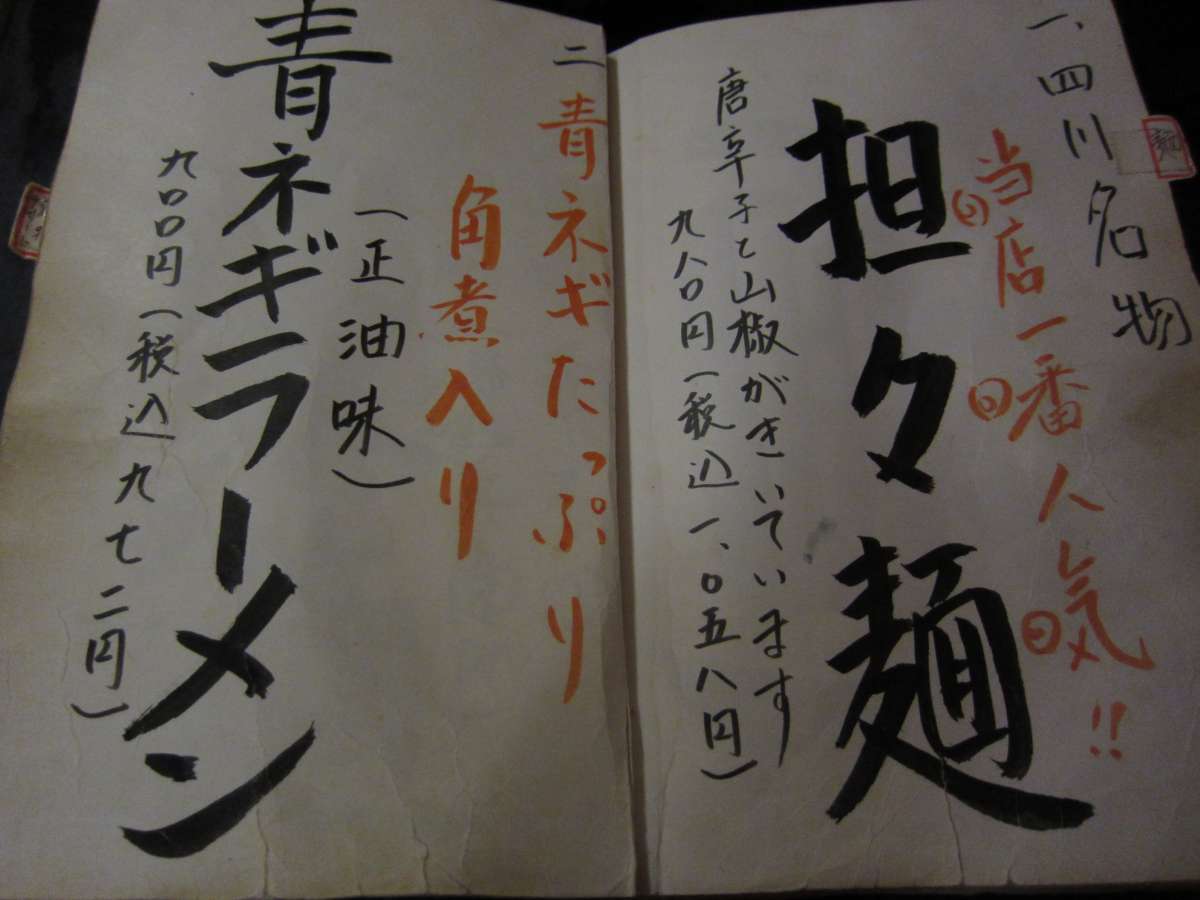 一、四川名物
当店一番人気!!
担々麺
唐辛子と山椒がきいています
九八〇円(税込一、〇五八円)
麺
二 青ネギたっぷり
角煮入り
(正油味)
青ネギラーメン
九〇〇円(税込九七二円)